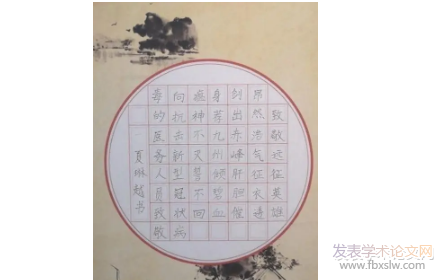 致敬远征英雄
然浩气征衣透
剑出赤峰肝胆催
身荐九州颂碧血
瘟神不灭誓不回
向抗击新型冠状病
毒的医务人员致敬
夏琳越书
发表学术论文网
www.fbxslw.com